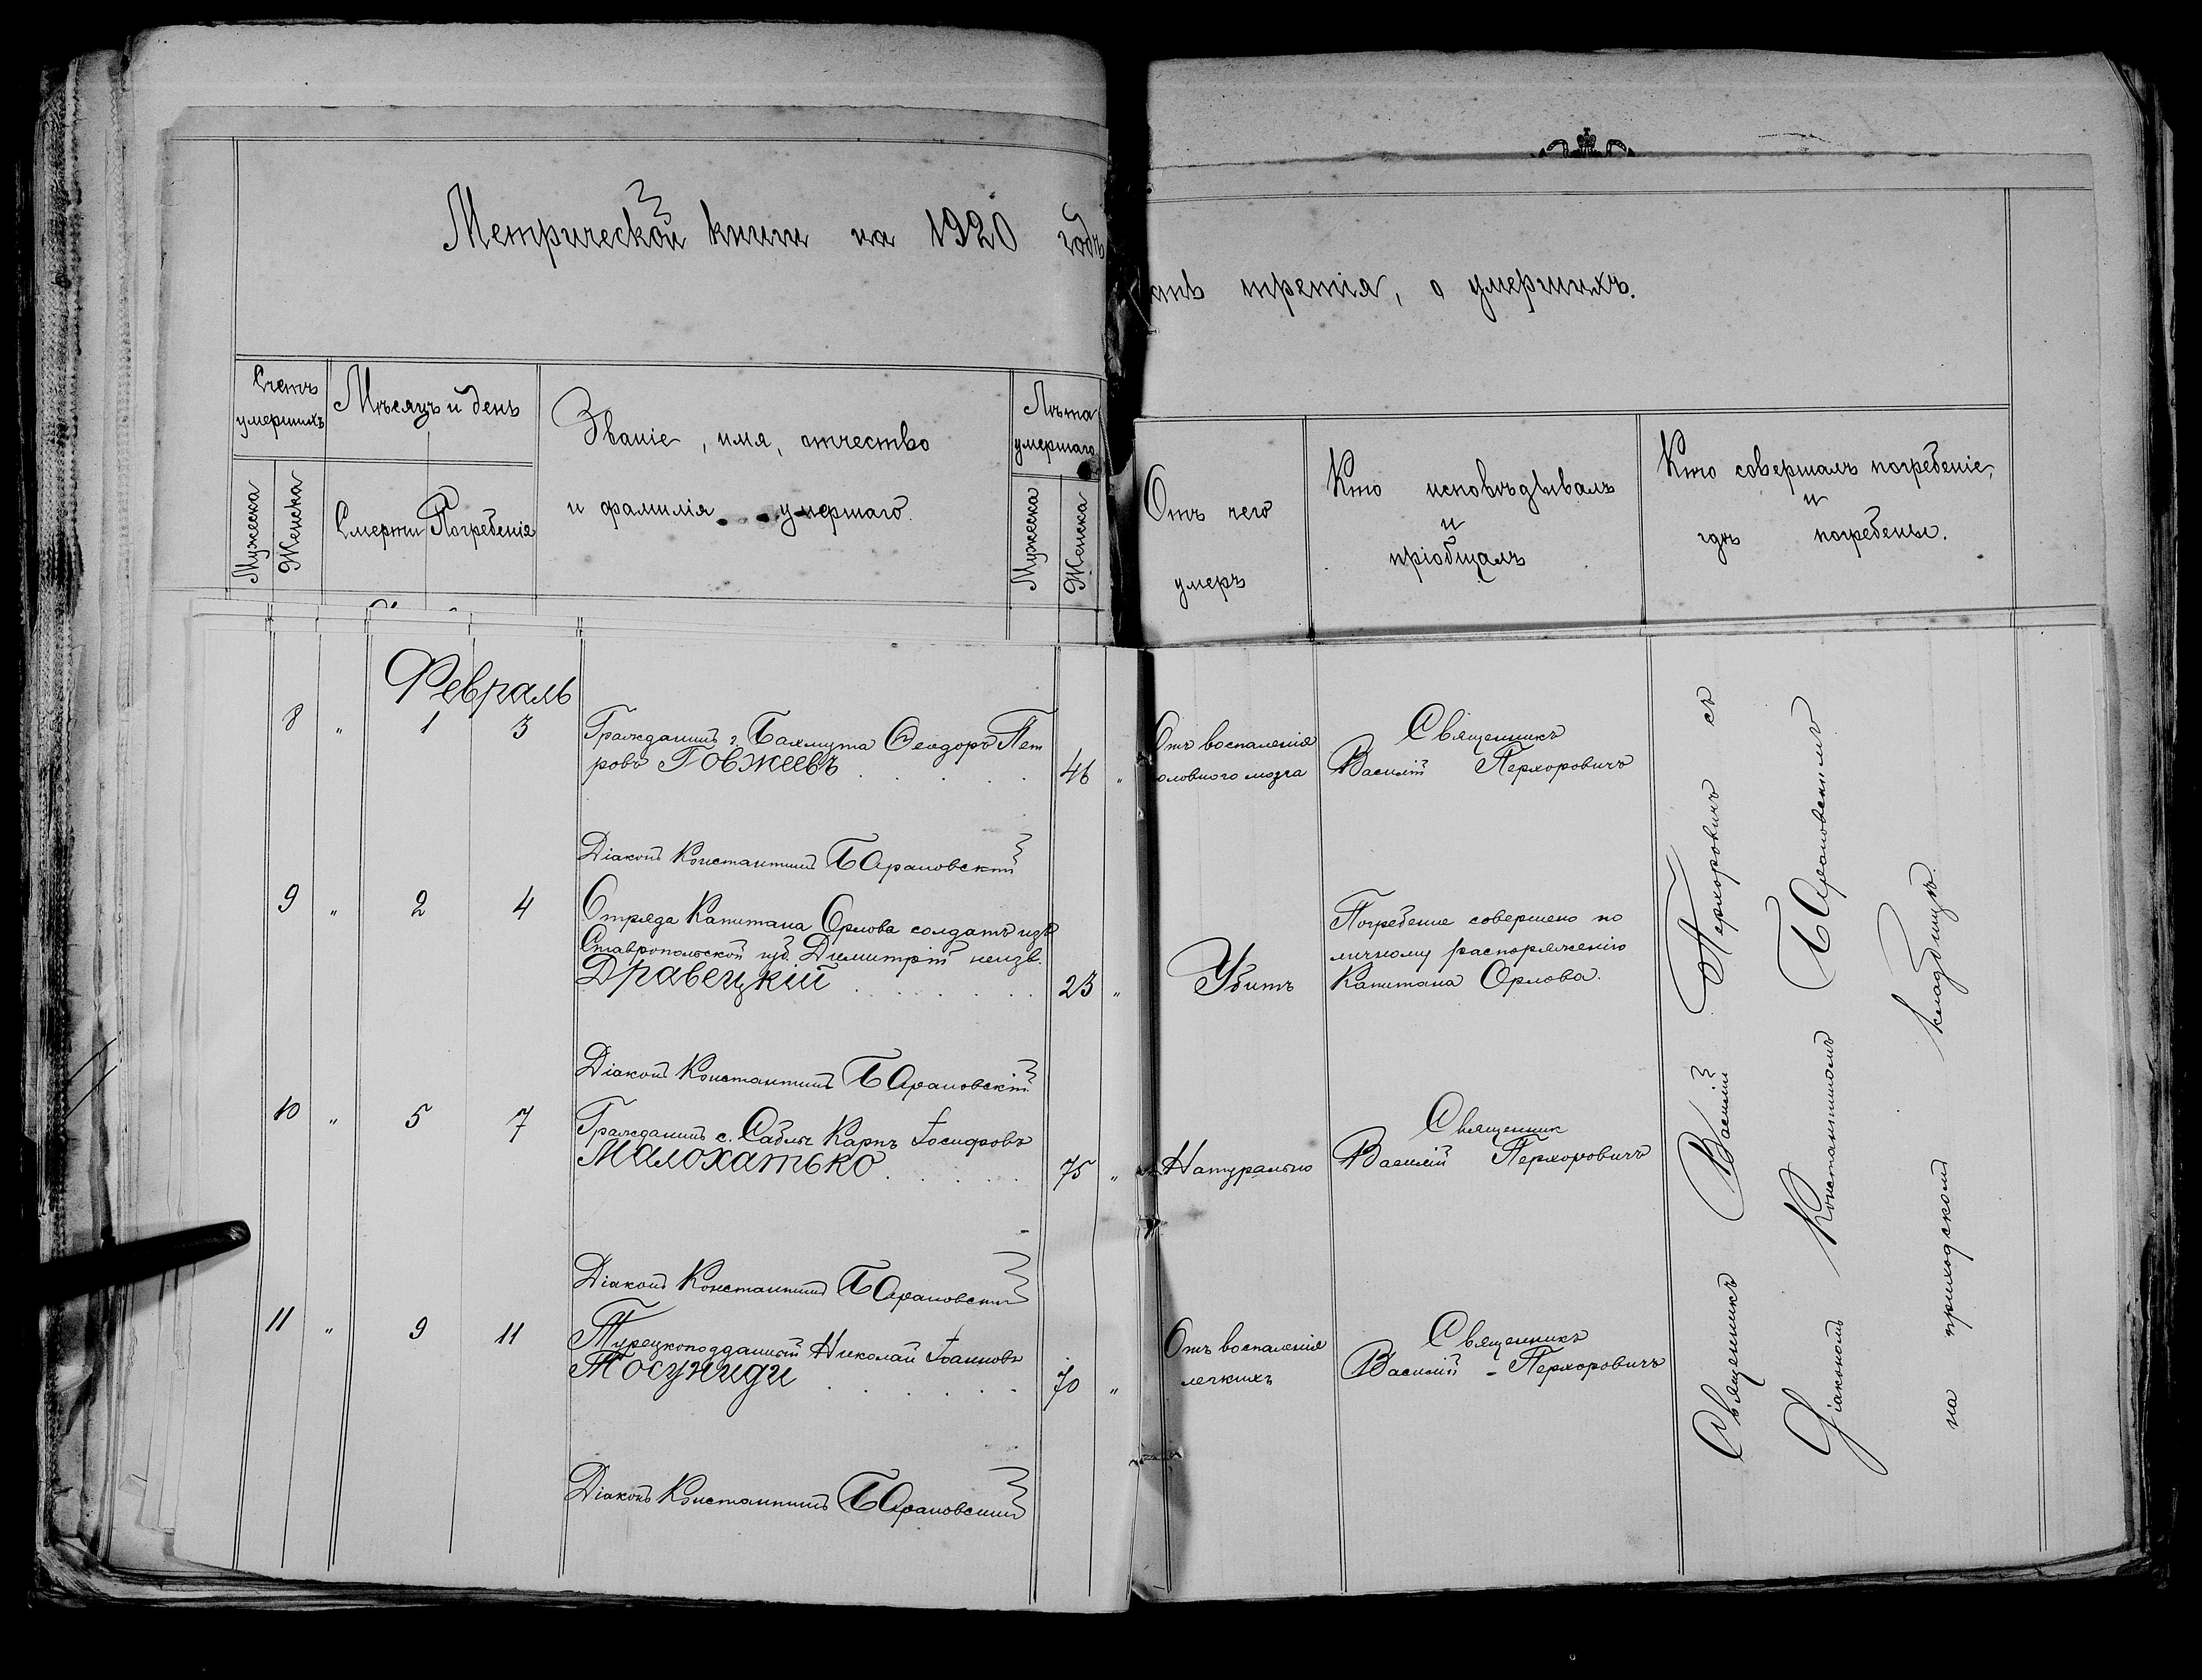 Метрической книги на 1920 годъ
сть третія, о умершихъ.
Счетъ
умершихъ
Мужеска
Женска
Мѣсяцъ и день
Смерти
Погребенія
Званіе, имя, отчество
и фамилія умершаго.
Лѣта
умершаго
Мужеска
Женска
Отъ чего
умеръ
Кто исповѣдывалъ
и
пріобщалъ
Кто совершалъ погребеніе,
и
гдѣ погребены.
Февраль
8 " 1 3
Гражданинъ г. Бахмута Ѳеодоръ Пет
ровъ Говжеевъ
46 "
Отъ воспаленія
оловного мозга
Священникъ
Василій Перхоровичъ
Діаконъ Константинъ Барановскій
9 " 2 4
Отряда Капитана Орлова солдатъ изъ
Ставропольской губ. Димитрій неизв.
Дравецкій
23 "
Убитъ
Погребение совершено по
личному распоряженію
Капитана Орлова.
Діаконъ Константинъ Барановскій
10 " 5 7
Гражданинъ с. Саблы Карпъ Іосифовъ
Малохатько
75 "
Натурально
Священник
Василій Перхоровичъ
Діаконъ Константинъ Барановскій
11 " 9 11
Турецкоподданный Николай Іоанновъ
Тосуниди
70 "
Отъ воспаленія
легкихъ
Священникъ
Василій - Перхоровичъ
Діаконъ Константинъ Барановский
Священникъ Василій Перхоровичъ съ
Діакономъ Константиномъ Барановскимъ
на приходскомъ кладбищѣ.